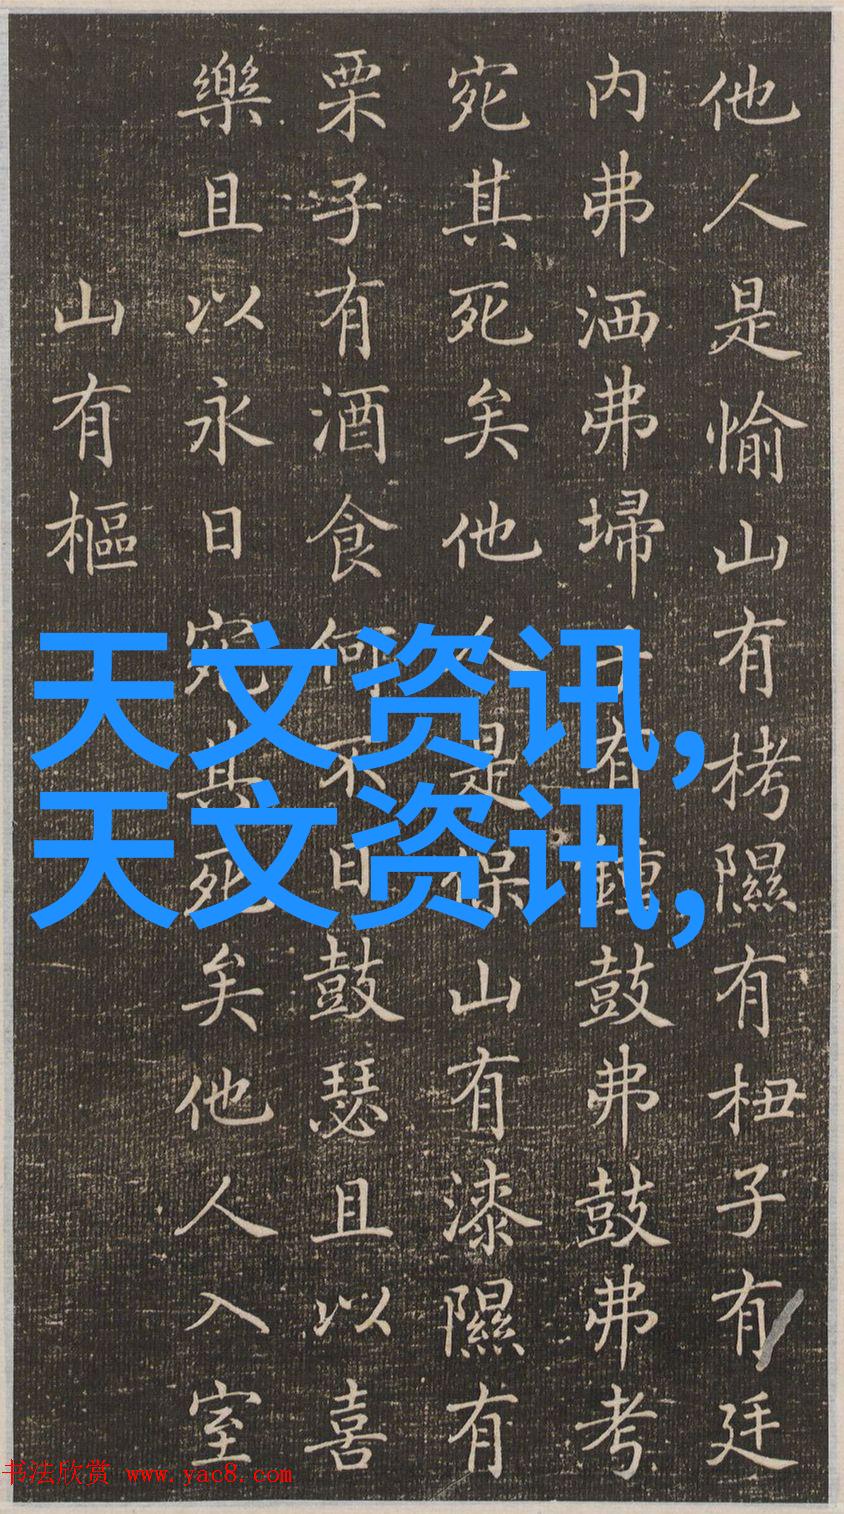 他人是愉山有栲隰有杻子有廷
内弗洒弗埽子有鍾鼓弗鼓弗考
宛其死矣他人是保山有漆隰有
栗子有酒食何不日鼓瑟且以喜
樂且以永日宛其死矣他人入室
山有樞
天文资讯,
天文资讯,
书法欣赏 www.yac8.com